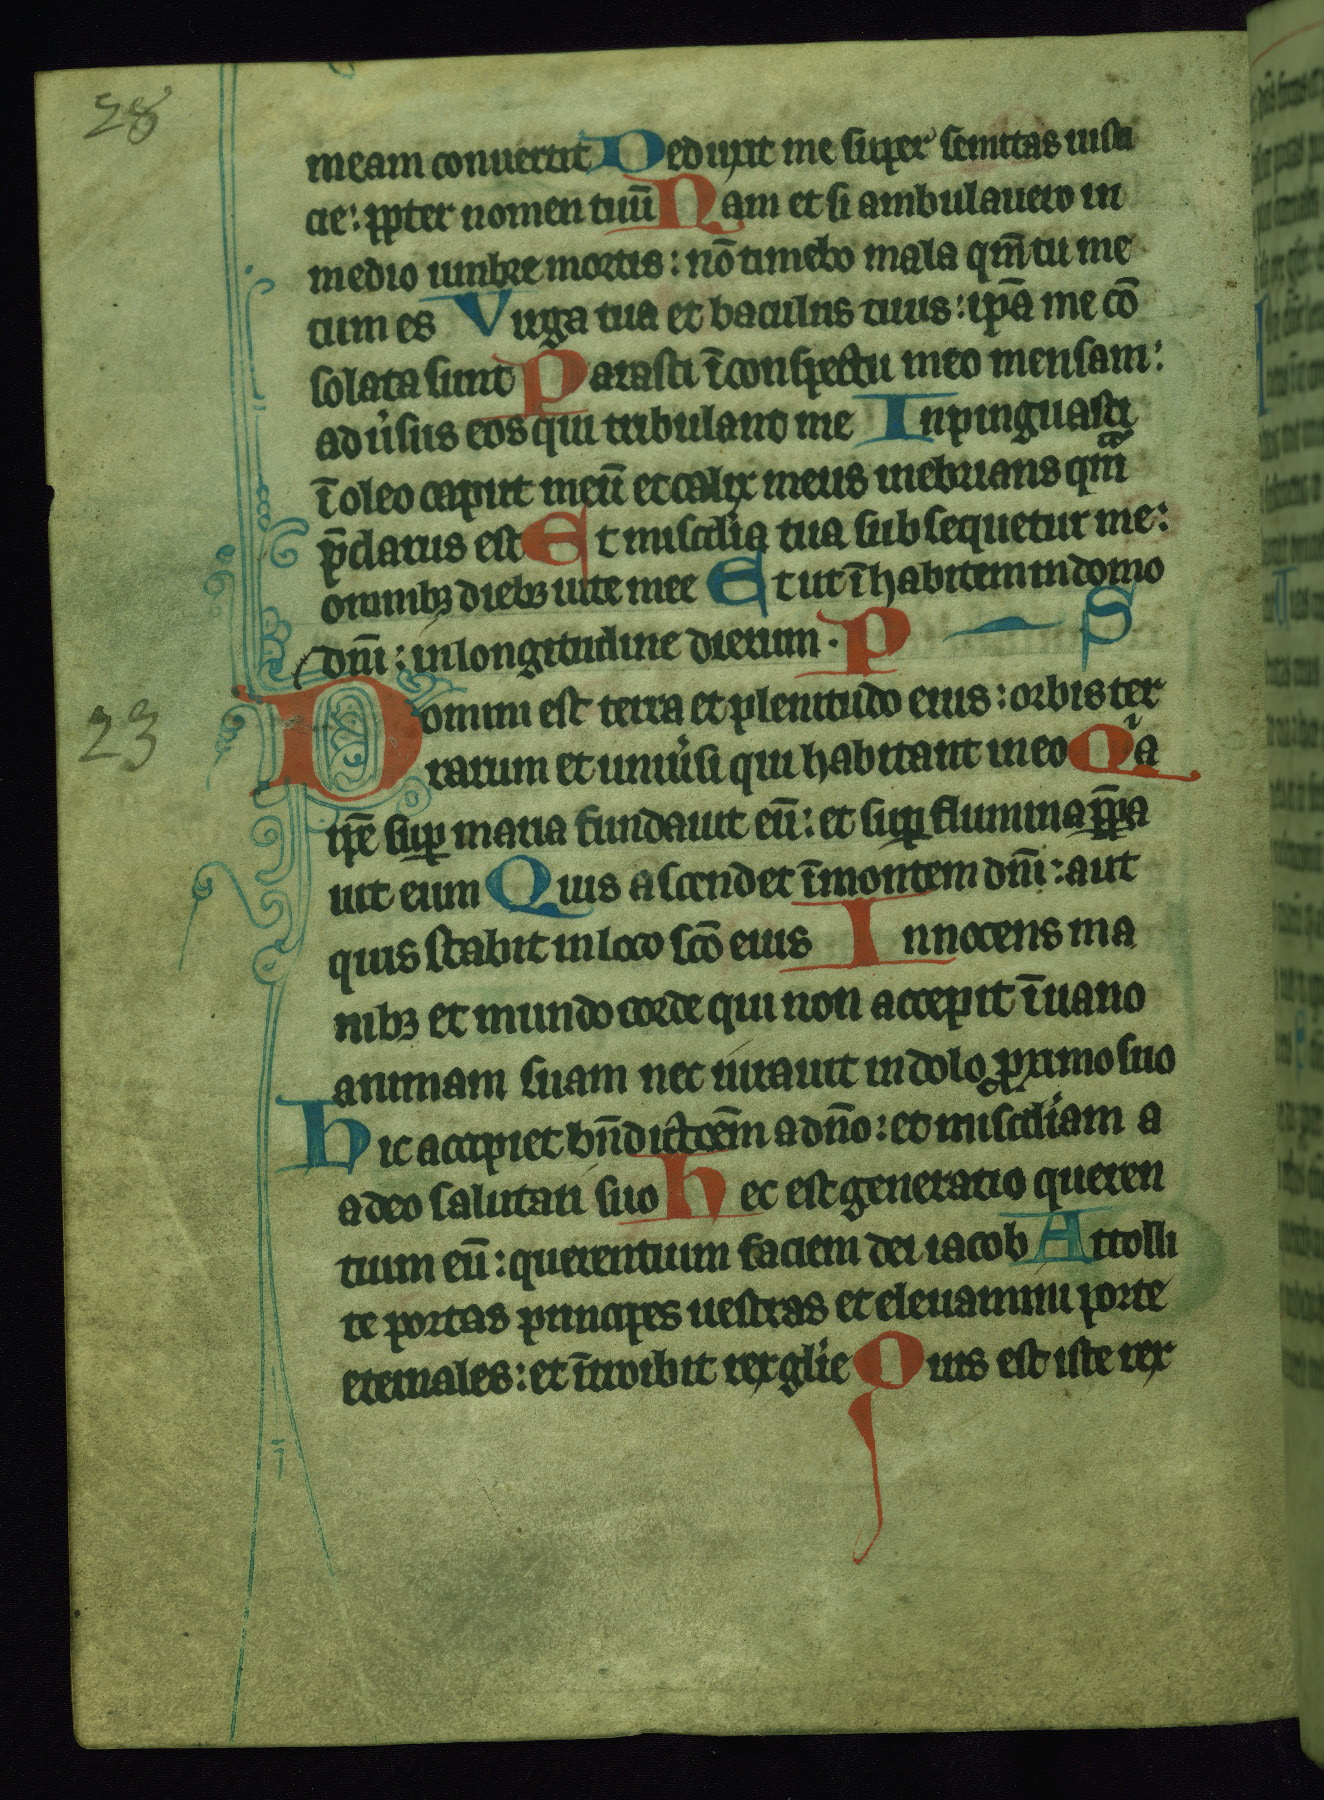 28
meam conuertit Deduxit me super semitas iusti
cie: ꝓpter nomen tuū Nam et si ambulauero in
medio umbre mortis: nō timebo mala qm̄ tu me
cum es Virga tua et baculus tuus: ip̄a me cō
solata sunt Parasti ī conspectu meo mensam:
aduˀsus eos qui tribulant me Inpinguasti
ī oleo caput meū et calix meus inebrians qm̄
p̄clarus est Et misc̄dia tua subsequetur me:
omnibꝫ diebꝫ uite mee Et ut īhabitem in domo
dn̄i: in longitudine dierum. P S
23
Domini est terra et plenitudo eius: orbis ter
rarum et uniuˀsi qui habitant in eo Qͥa
ip̄e suꝑ maria fundauit eū: et suꝑ flumina p̄ꝑa
uit eum Quis ascendet ī montem dn̄i: aut
quis stabit in loco scō eius Innocens ma
nibꝫ et mundo corde qui non accepit ī uano
animam suam nec iurauit in dolo ꝓximo suo
hic accipiet bn̄dictōem a dn̄o: et misc̄diam a
a deo salutari suo hec est generatio queren
tium eū: querentium faciem dei iacob Attolli
te portas principes uestras et eleuamini porte
eternales: et ītroibit rex glīe Quis est iste rex